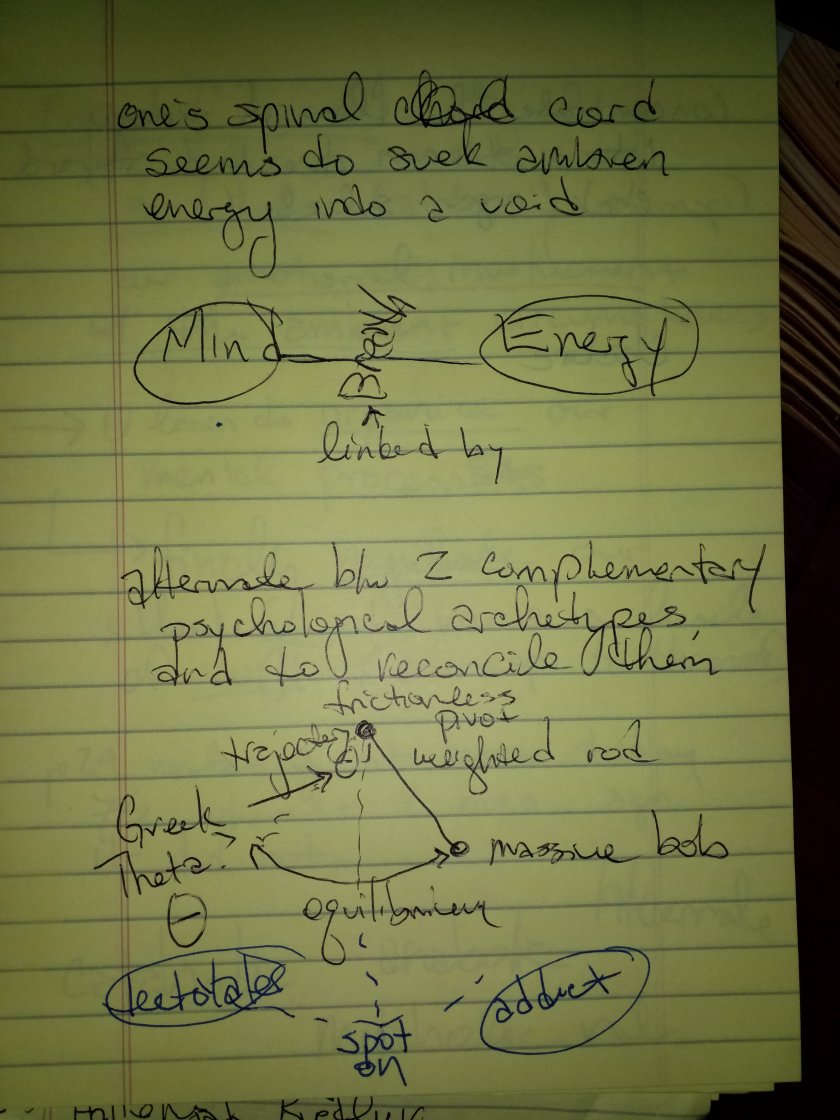 one's spinal cord
seems to suck
energy into a void
Mind
Breath
Energy
linked by
alternate btw 2 complementary
psychological archetypes,
and to reconcile them
frictionless
pivot
trajectory
weighted rod
Greek
Theta
massive bob
Θ
equilibrium
adduct
spot
on